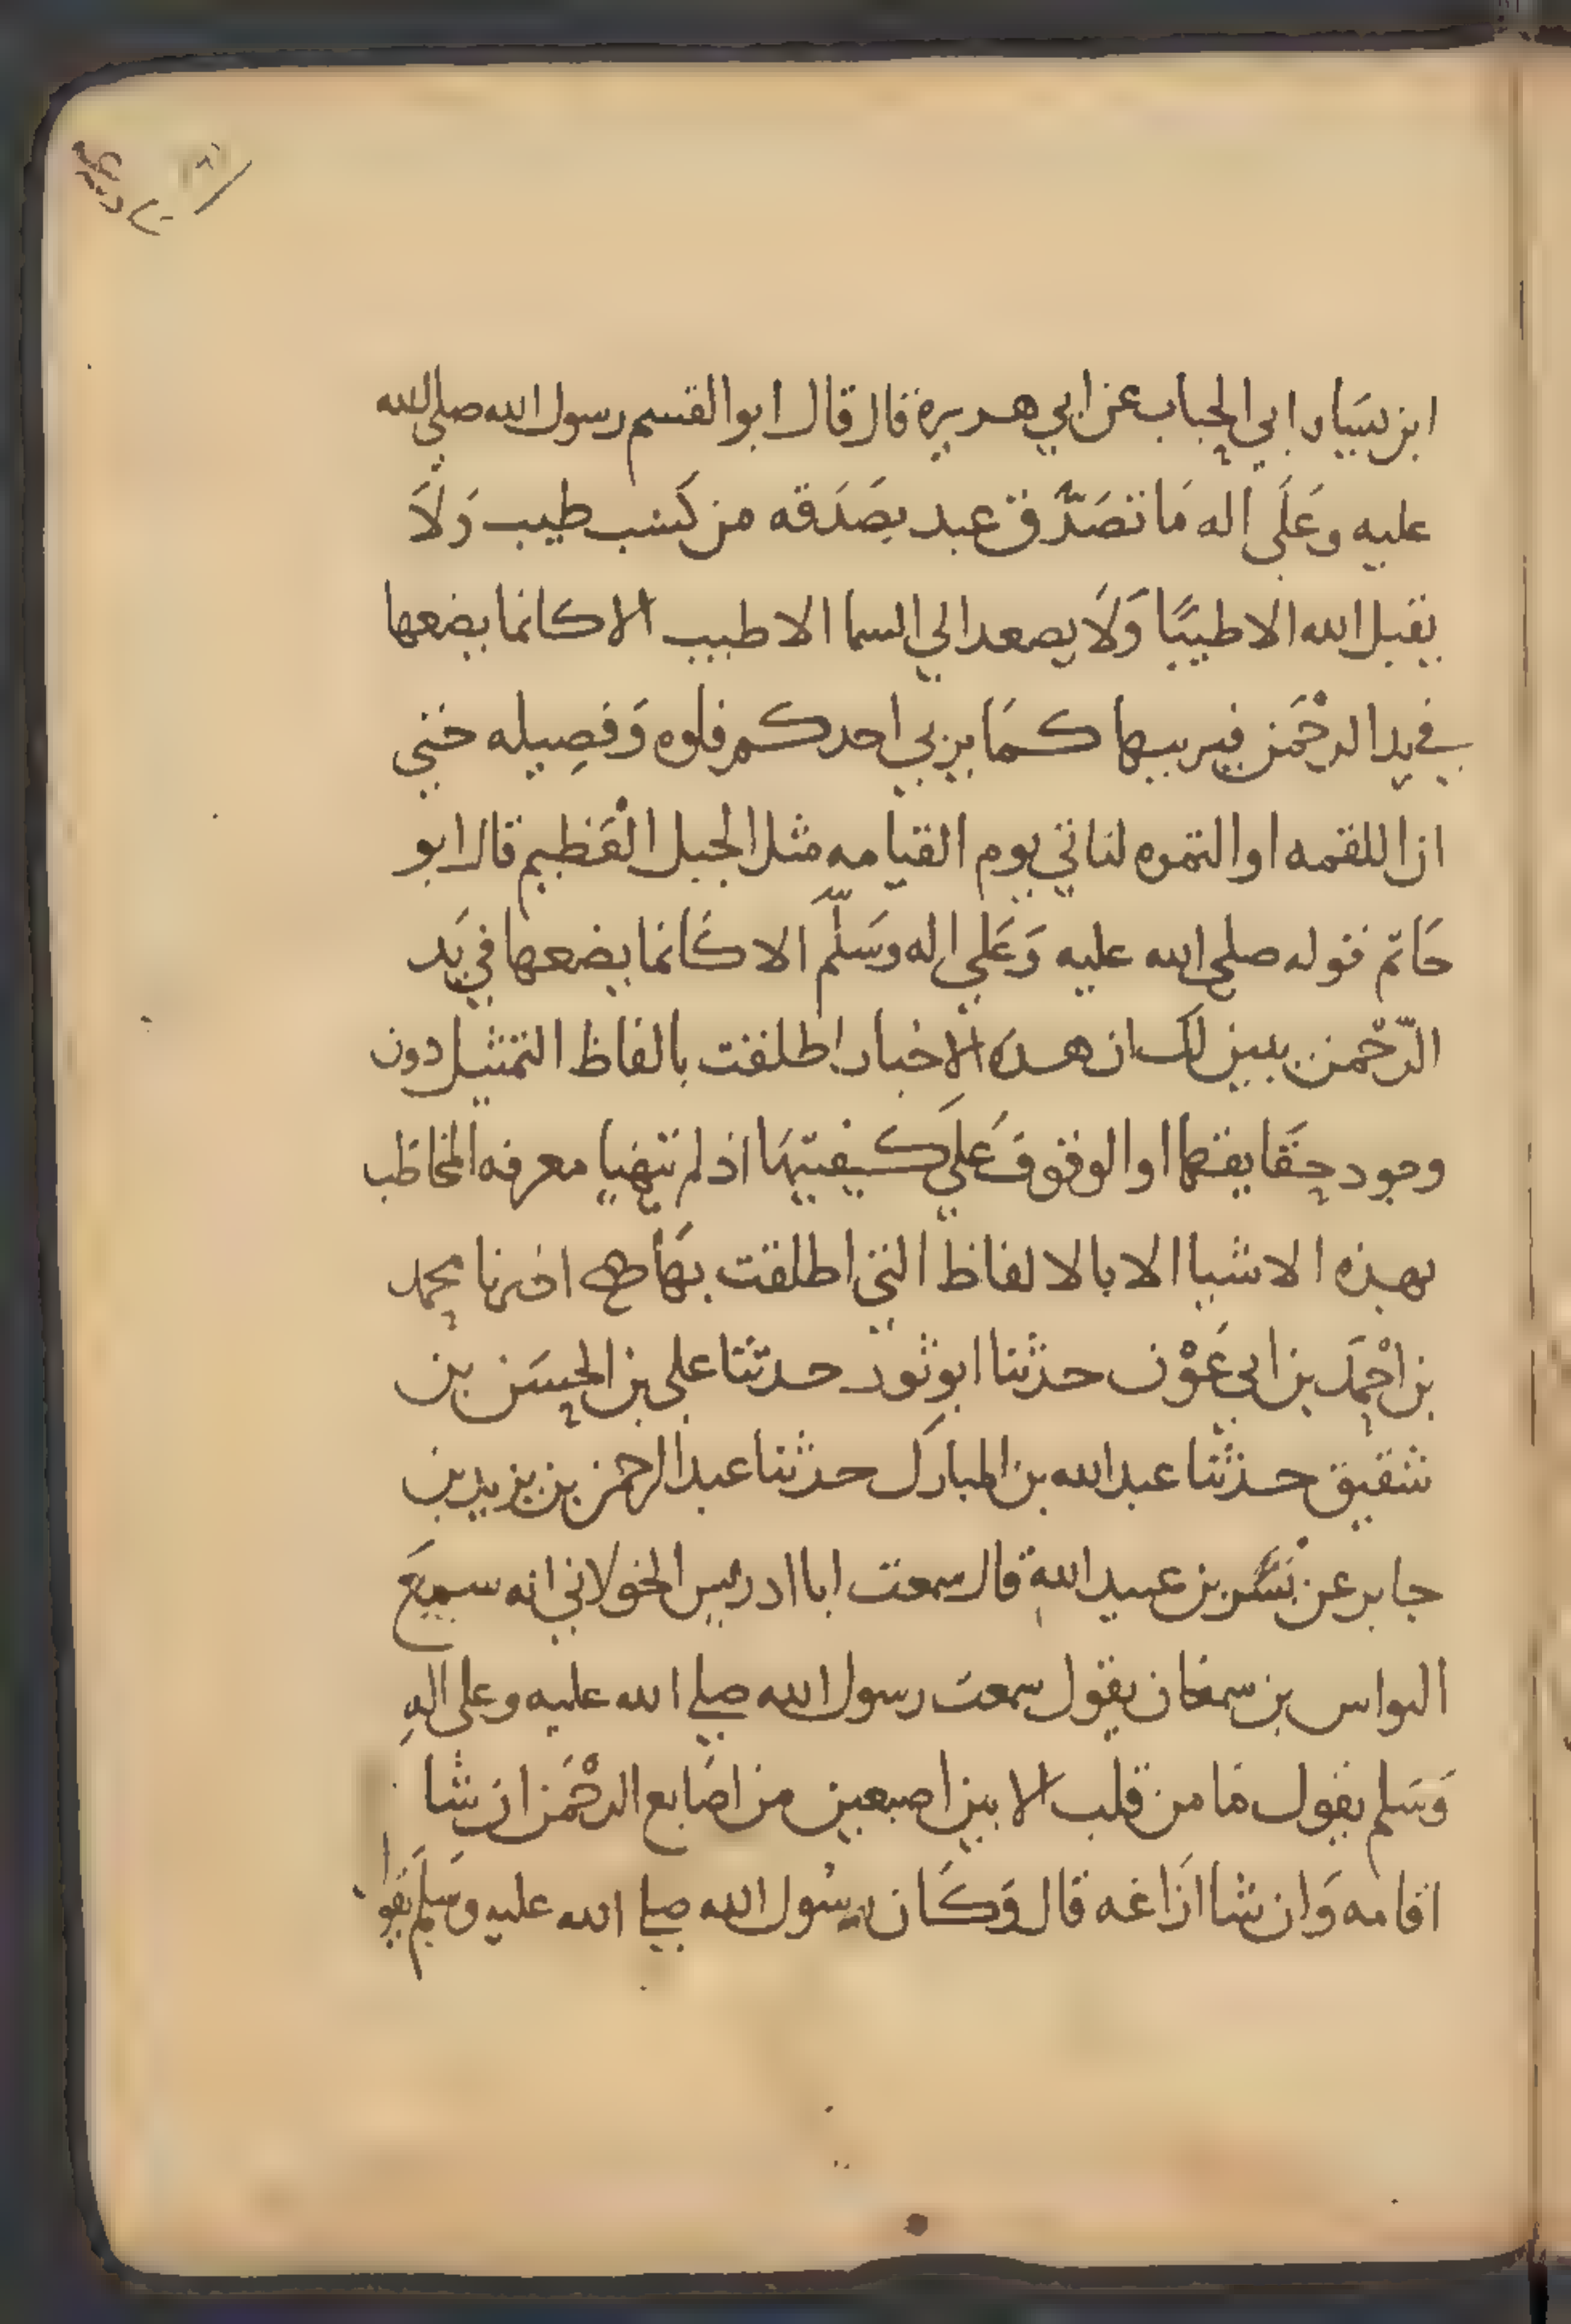 ابن يسار ابي الحباب عن ابي هريرة قال قال ابو القسم رسول الله صلى الله
عليه وعَلَى اله مَا تصَدَّق عبد بصَدَقه من كَسب طيب وَلَا
يقبل الله الا طيبًا وَلَا يصعد الي السما الا طيب الا كانما يضعها
في يد الرحْمَن فيربيها كمَا يربي احدكم فلوه وَفصِيله حتي
ان اللقمه او التمره لتاتي يوم القيامه مثل الجبل الْعَظيم قال ابو
حَاتم قوله صلى الله عليه وَعَلي اله وسَلَّمَ الا كَانما يضعها في يَد
الرّحْمن يبين لك ان هذه الاخبار اطلقت بالفاظ التمثيل دون
وجود حقَايقها او الوقوف عَلَي كيفيتهَا اذ لم يتهيا معرفه المخاطب
بهذه الاشيا الا بالالفاظ التي اطلقت بهَا اخبرنا محمد
بن احْمَد بن ابي عَوْن حدثنا ابو ثور حدثنا علي بن الحسَن بن
شقيق حدثنا عبد الله بن المبارك حدثنا عبد الرحمن بن يزيد بن
جابر عن بُسْر بن عبيد اللهِ قال سمعت ابا ادريس الخولاني انه سميعَ
النواس بن سمعان يقول سمعت رسول الله صلي الله عليه وعلى الهِ
وَسَلم يقول مَا من قلب الا بين اصبعين من اصَابع الرحْمَن ان شا
اقامه وَان شا ازَاغه قال وَكَان رسُول الله صلي الله عليه وسَلَّم يقول